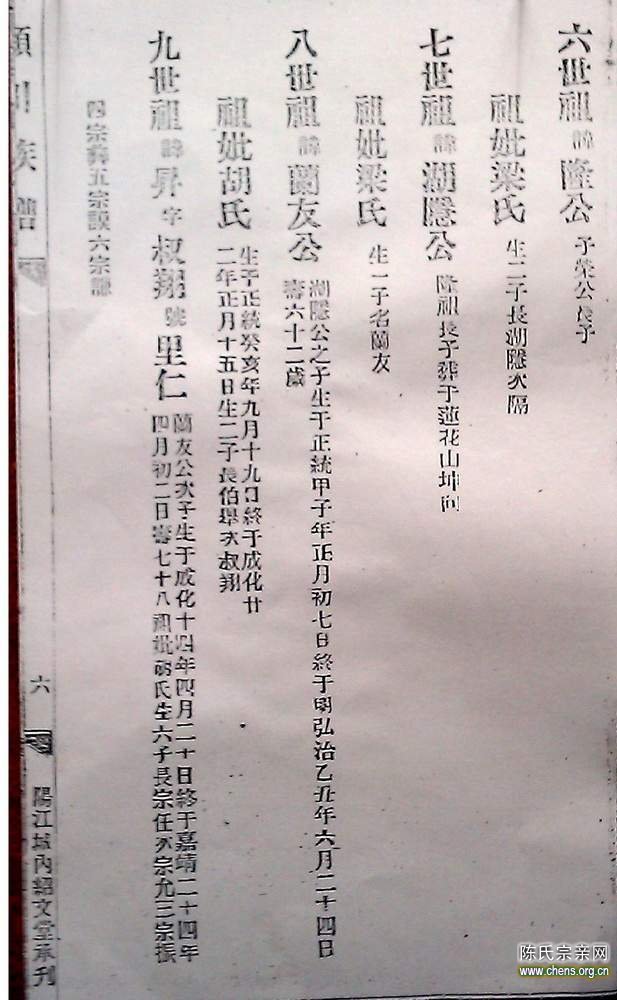 六世祖諱隆公 子榮公長子
祖妣梁氏 生二子長湖隱次隔
七世祖諱湖隱公 隆祖長子葬于蓮花山坤向
祖妣梁氏 生一子名蘭友
八世祖諱蘭友公 湖隱公之子生于正統甲子年正月初七日終于明弘治乙丑年六月二十四日
壽六十二歲
祖妣胡氏 生于正統癸亥年九月十九日終于成化廿
二年正月十五日生二子長伯舉次叔翔
九世祖諱昇字叔翔號里仁 蘭友公次子生于成化十四年四月二十日終于嘉靖二十四年
四月初二日壽七十八祖妣 氏生六子長宗任次宗允三宗振
四宗 五宗 六宗
潁川族譜
六
陽江城內紹文堂承刊
陈氏宗亲网
www.chens.org.cn